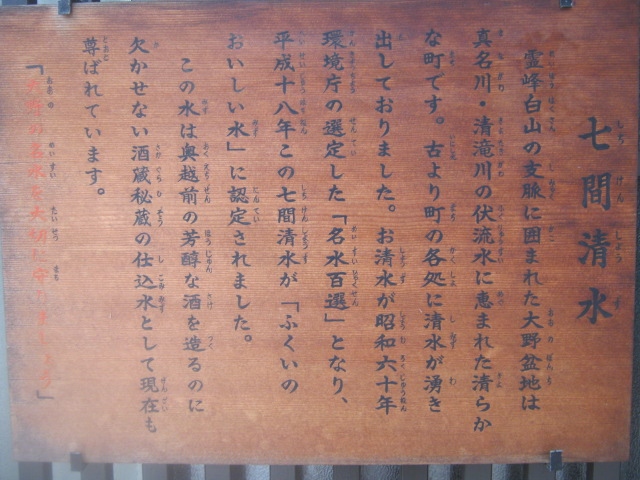 七間清水
霊峰白山の支脈に囲まれた大野盆地は
真名川・清滝川の伏流水に恵まれた清らか
な町です。古より町の各処に清水が湧き
出しておりました。お清水が昭和六十年
環境庁の選定した「名水百選」となり、
平成十八年この七間清水が「ふくいの
おいしい水」に認定されました。
この水は奥越前の芳醇な酒を造るのに
欠かせない酒蔵秘蔵の仕込水として現在も
尊ばれています。
「大野の名水を大切に守りましょう」